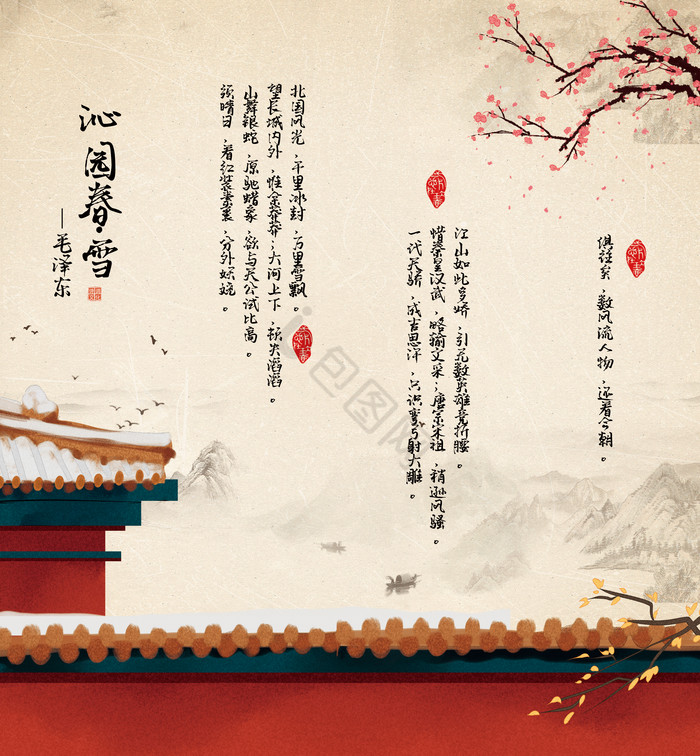 沁园春·雪
—毛泽东
北国风光，千里冰封，万里雪飘。
望长城内外，惟余莽莽；大河上下，顿失滔滔。
山舞银蛇，原驰蜡象，欲与天公试比高。
须晴日，看红装素裹，分外妖娆。
江山如此多娇，引无数英雄竞折腰。
惜秦皇汉武，略输文采；唐宗宋祖，稍逊风骚。
一代天骄，成吉思汗，只识弯弓射大雕。
俱往矣，数风流人物，还看今朝。
包图网